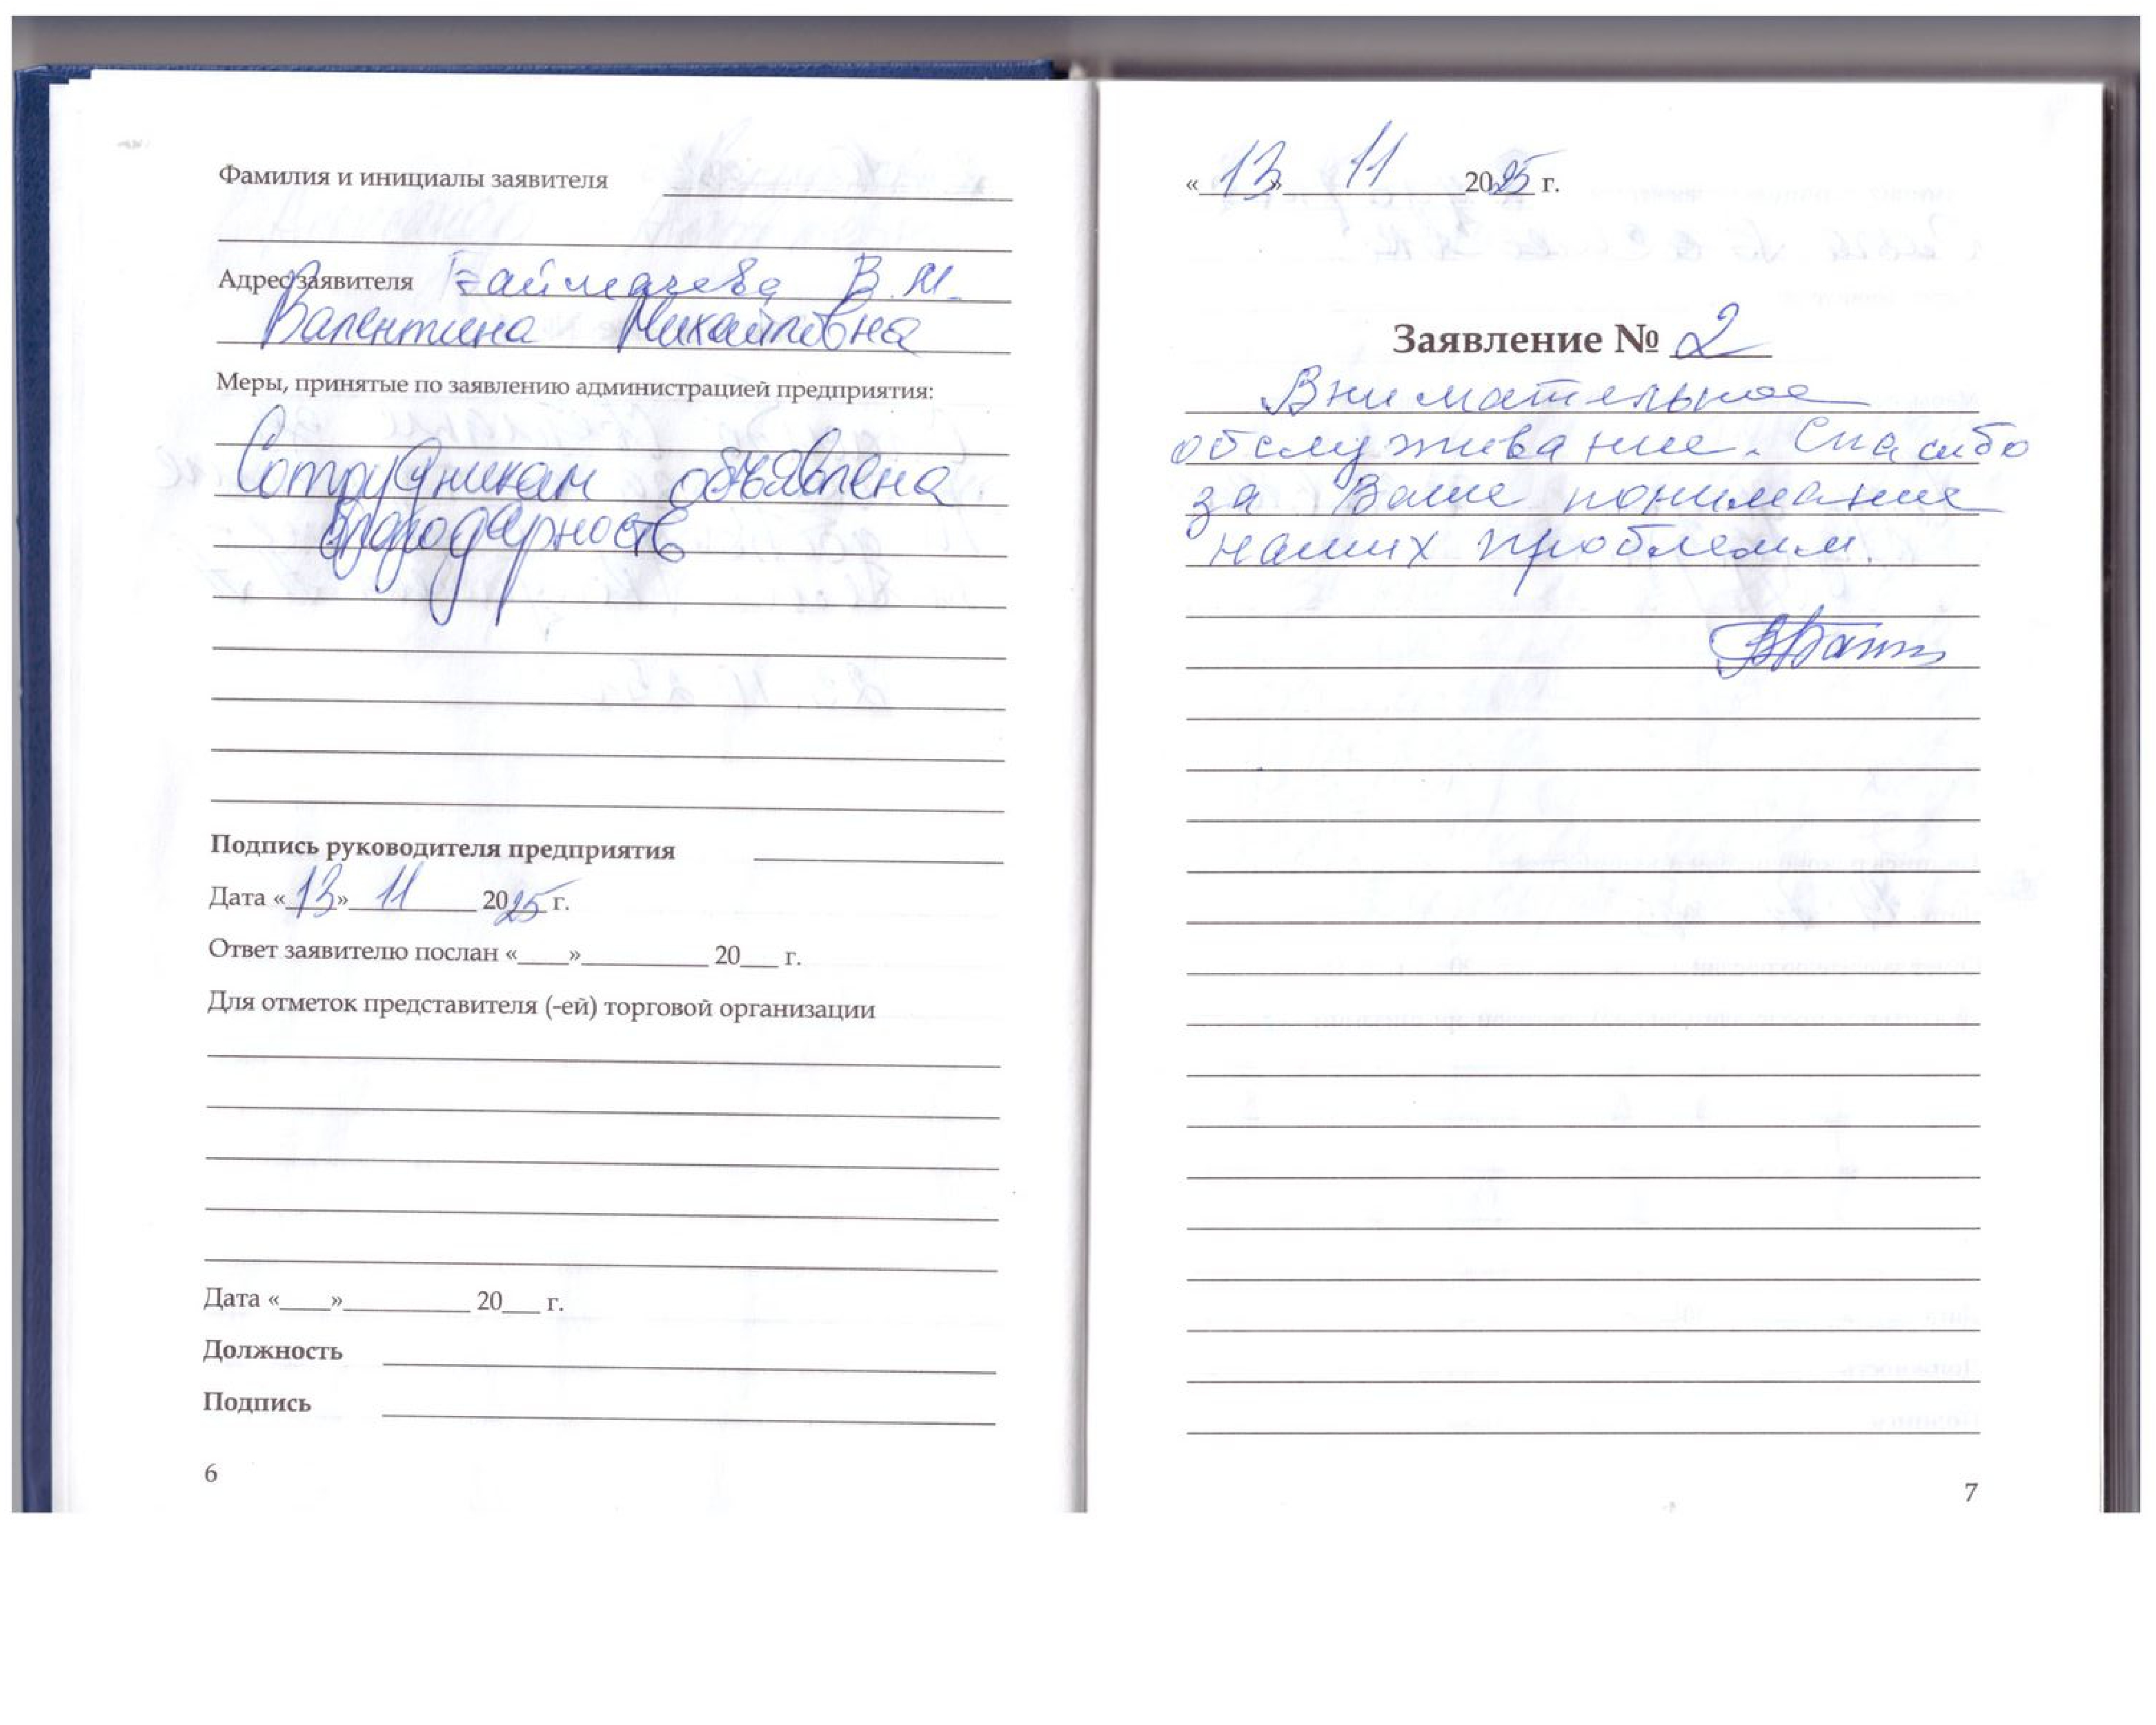 Фамилия и инициалы заявителя
Адрес заявителя В.М.
Валентина Михайловна
Меры, принятые по заявлению администрацией предприятия:
Сотрудникам объявлена
благодарность
Подпись руководителя предприятия
Дата «13» 11 2025 г.
Ответ заявителю послан «____»__________ 20___ г.
Для отметок представителя (-ей) торговой организации
Дата «____»__________ 20___ г.
Должность
Подпись
6
«13» 11 2025 г.
Заявление № 2
Внимательное
обслуживание. Спасибо
за Ваше понимание
наших проблемм.
7